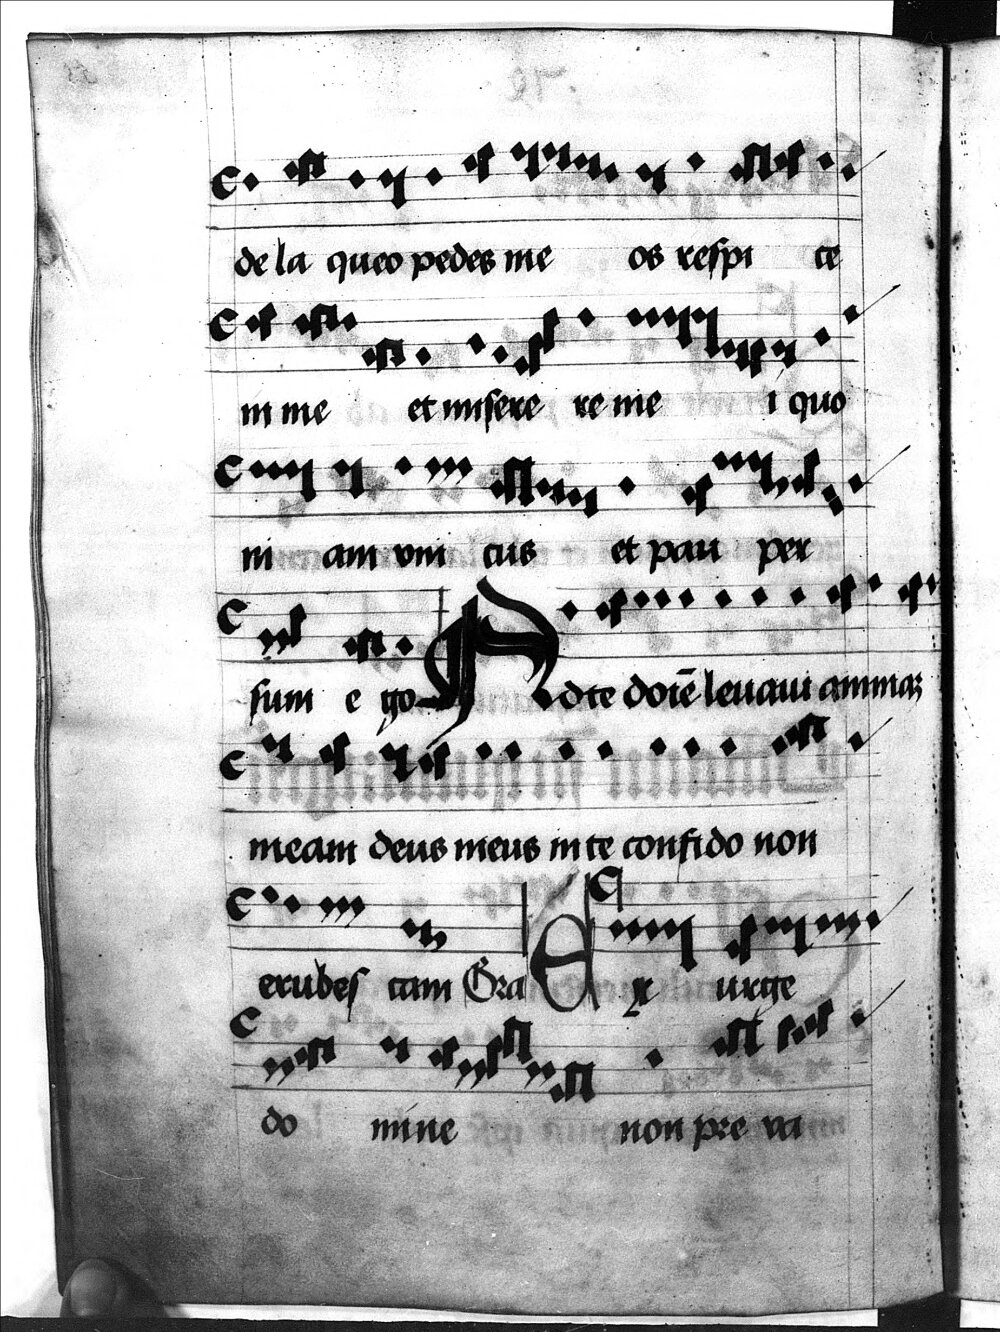 de la queo pedes me os respi ce
in me et misere re me i quo
ni am vni cus et pau per
sum e go Ad te domē leuaui animaʒ
meam deus meus in te confido non
erubes cam Gra Ex urge
do mine non pre va